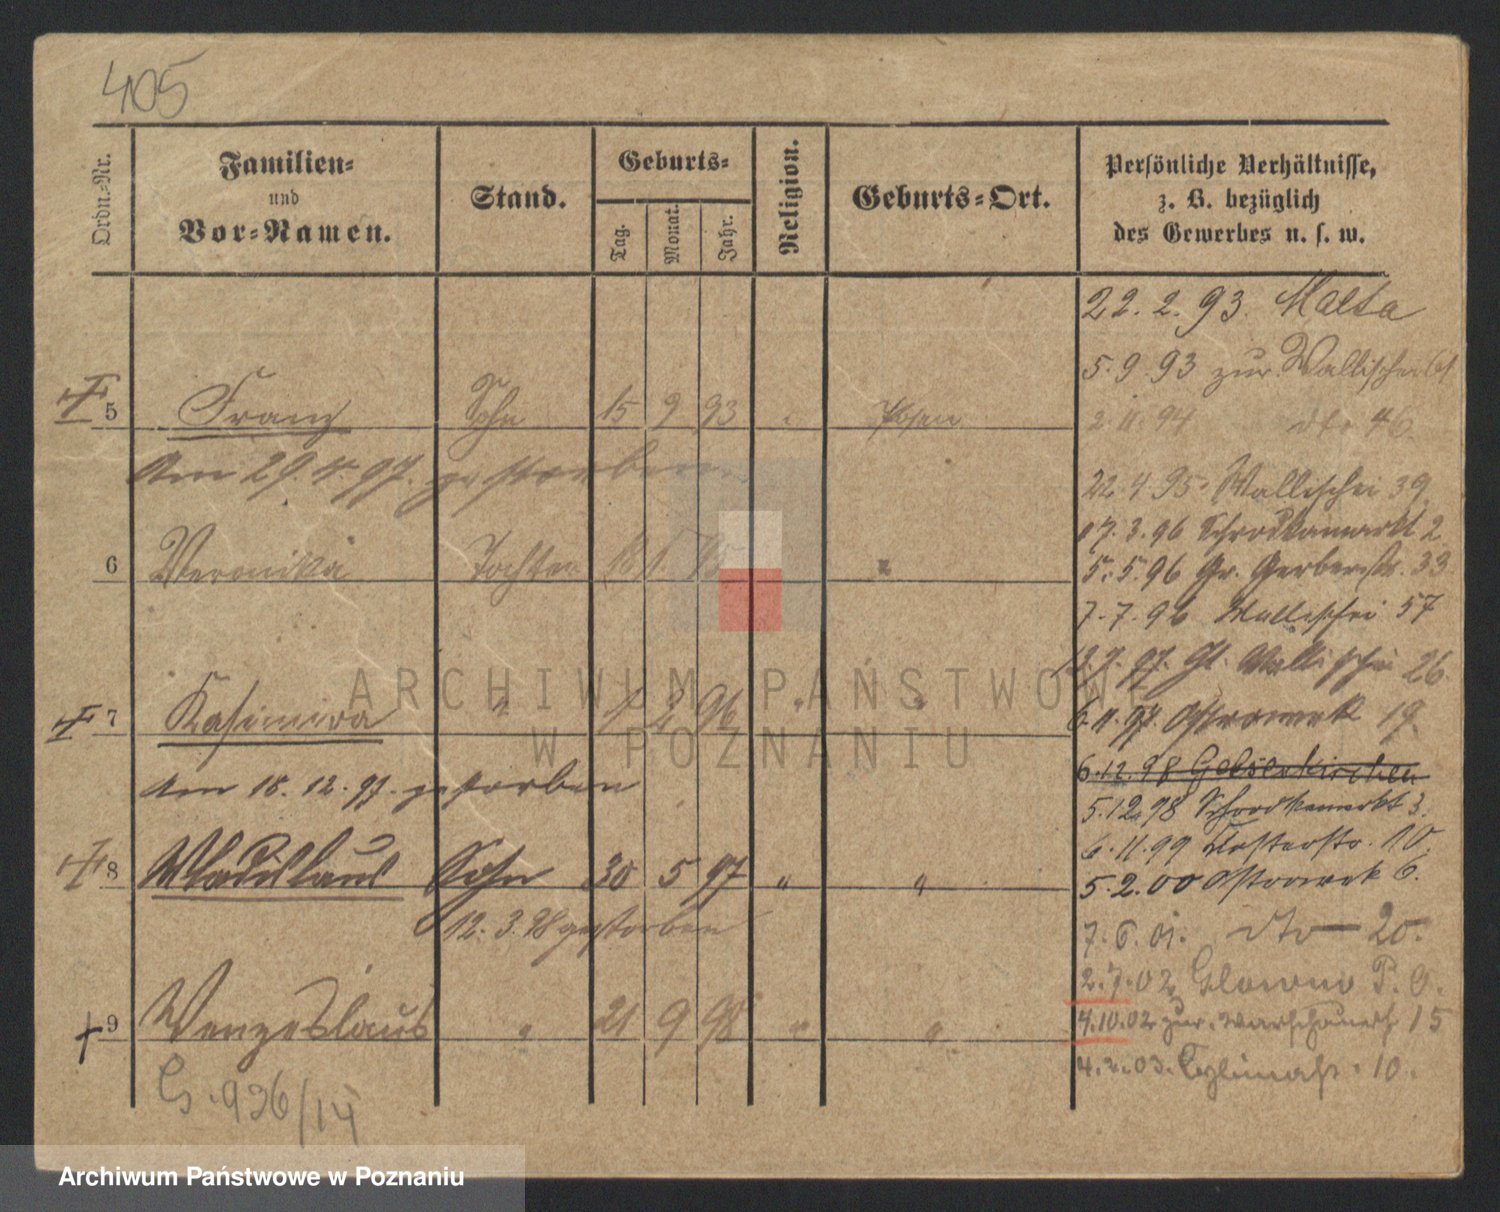 405
Ordn.-Nr.
Familien-
und
Vor-Namen.
Stand.
Geburts-
Tag.
Monat.
Jahr.
Religion.
Geburts-Ort.
Persönliche Verhältnisse,
z. B. bezüglich
des Gewerbes u. s. w.
22. 2. 93. Malta
5. 9. 93 zur Wallischei
5 Franz Sohn 15 9 93 Posen
2. 11. 94 dto 46
Am 29. 4. 97. gestorben
22. 4. 95. Wallischei 39
17. 3. 96 Schrodkamarkt 2
6 Veronika Tochter
5. 5. 96 Gr. Gerberstr. 33
7. 7. 96 Wallischei 57
7. 97. Wallischei 26.
7 Kasimira " 2 96 " "
6. 11. 97. Ostrowek 19.
6. 12. 98 Gelsenkirchen
am 18. 12. 97. gestorben
5. 12. 98 Schrodkamarkt 3.
6. 11. 99 10.
8 Wladislaus Sohn 30 5 97 " "
5. 2. 00 Ostrowek 6.
12. 3. 98 gestorben
7. 6. 01. dto 20.
2. 7. 02 Glowno P. O.
9 Wenzeslaus " 21 9 98 " "
4. 10. 02 zur. Warschauerstr. 15
4. 03. 10.
G. 936/14
ARCHIWUM PAŃSTWOWE
W POZNANIU
Archiwum Państwowe w Poznaniu